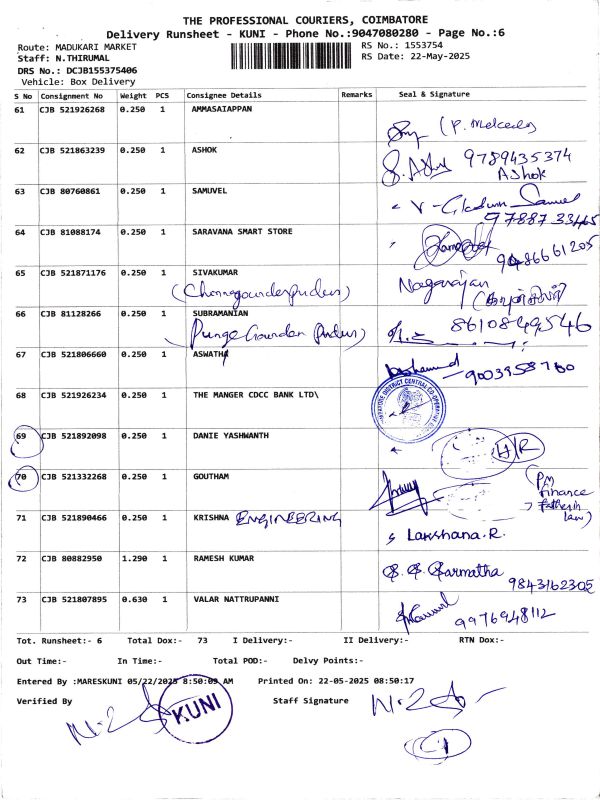 THE PROFESSIONAL COURIERS, COIMBATORE
Delivery Runsheet - KUNI - Phone No.:9047080280 - Page No.:6
Route: MADUKARI MARKET
RS No.: 1553754
Staff: N.THIRUMAL
RS Date: 22-May-2025
DRS No.: DCJB155375406
Vehicle: Box Delivery
S No Consignment No Weight PCS Consignee Details Remarks Seal & Signature
61 CJB 521926268 0.250 1 AMMASAIAPPAN
62 CJB 521863239 0.250 1 ASHOK 9789435374
Ashok
63 CJB 80760861 0.250 1 SAMUVEL
9788733465
64 CJB 81088174 0.250 1 SARAVANA SMART STORE
9486661205
65 CJB 521871176 0.250 1 SIVAKUMAR Nagarajan
66 CJB 81128266 0.250 1 SUBRAMANIAN 8610849546
67 CJB 521806660 0.250 1 ASWATH
9003958760
68 CJB 521926234 0.250 1 THE MANGER CDCC BANK LTD\
69 CJB 521892098 0.250 1 DANIE YASHWANTH H/R
70 CJB 521332268 0.250 1 GOUTHAM (PM
Finance
Father in
law)
71 CJB 521890466 0.250 1 KRISHNA ENGINEERING
Lakshana.R.
72 CJB 80882950 1.290 1 RAMESH KUMAR
S. S. Sarmatha
9843162305
73 CJB 521807895 0.630 1 VALAR NATTRUPANNI
9976948112
Tot. Runsheet:- 6 Total Dox:- 73 I Delivery:- II Delivery:- RTN Dox:-
Out Time:- In Time:- Total POD:- Delvy Points:-
Entered By :MARESKUNI 05/22/2025 8:50:09 AM Printed On: 22-05-2025 08:50:17
Verified By KUNI Staff Signature